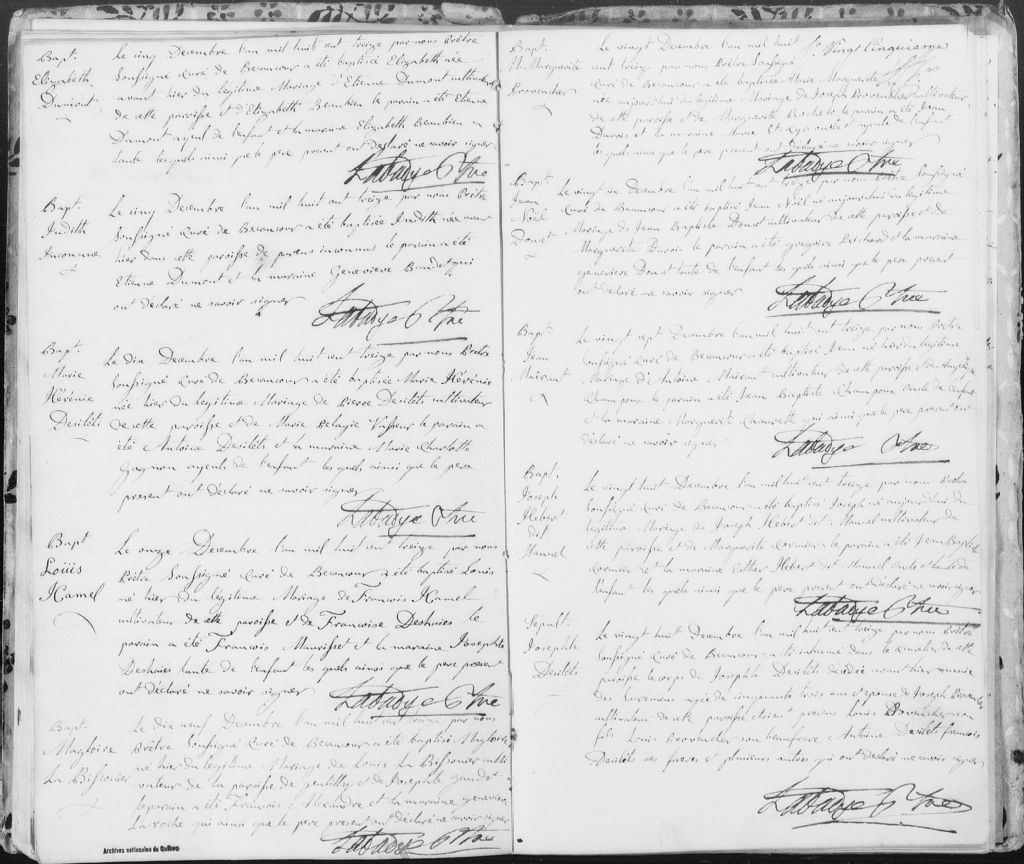 Bapt.
Elizabeth
Dumont
Le cinq Decembre l'an mil huit cent treize par nous Prêtre
Soussigné Curé de Becancour a été baptisée Elizabeth née
avant hier du legitime Mariage d'Etienne Dumont cultivateur
de cette paroisse et d'Elizabeth Beaubien le parain a été Etienne
Dumont ayeul de l'enfant et la maraine Elizabeth Beaubien sa
tante les quels ainsi que le pere present ont declaré ne savoir signer
Labadye Ptre
Bapt.
Judith
Inconnue
Le cinq Decembre l'an mil huit cent treize par nous Prêtre
Soussigné Curé de Becancour a été baptisée Judith née avant
hier dans cette paroisse de parens inconnus le parain a été
Etienne Dumont et la maraine Genevieve qui
ont declaré ne savoir signer
Labadye Ptre
Bapt.
Marie
Hérénie
Desilets
Le dix Decembre l'an mil huit cent treize par nous Prêtre
Soussigné Curé de Becancour a été baptisée Marie Hérénie
née hier du legitime Mariage de Pierre Desilets cultivateur
de cette paroisse et de Marie Pelagie Vasseur le parain a
été Antoine Desilets et la maraine Marie Charlotte
Gagnon ayeuls de l'enfant les quels ainsi que le pere
present ont declaré ne savoir signer
Labadye Ptre
Bapt
Louis
Hamel
Le onze Decembre l'an mil huit cent treize par nous
Prêtre Soussigné Curé de Becancour a été baptisé Louis
né hier du legitime Mariage de Francois Hamel
cultivateur de cette paroisse et de Francoise Deshaies le
parain a été Francois Maurisset et la maraine Josephte
Deshaies tante de l'enfant les quels ainsi que le pere present
ont declaré ne savoir signer
Labadye Ptre
Bapt.
Magloire
La Bissonier
Le dix neuf Decembre l'an mil huit cent treize par nous
Prêtre Soussigné Curé de Becancour a été baptisé Magloire
né hier du legitime Mariage de Louis La Bissonier culti
vateur de la paroisse de Gentilly et de Josephte Gaudet
le parain a été Francois Alexandre et la maraine genevieve
Laroche qui ainsi que le pere present ont declaré ne savoir signer
Labadye Ptre
Archives nationales du Québec
fo Vingt Cinquieme
Bapt.
M. Marguerite
Provencher
Le vingt Decembre l'an mil huit
cent treize par nous Prêtre Soussigné
Curé de Becancour a été baptisée Marie Marguerite
née aujourdhui du legitime Mariage de Joseph Provencher cultivateur
de cette paroisse et de Marguerite le parain a été Jean
et la maraine Marie St Cyr oncle et ayeule de l'enfant
les quels ainsi que le pere present ont declaré ne savoir signer
Labadye Ptre
Bapt.
Jean
Noël
Doucet
Le vingt Decembre l'an mil huit cent treize par nous Prêtre Soussigné
Curé de Becancour a été baptisé Jean Noël né aujourdhui du legitime
Mariage de Jean Baptiste Doucet cultivateur de cette paroisse et de
Marguerite le parain a été gregoire Richard et la maraine
genevieve Doucet tante de l'enfant les quels ainsi que le pere present
ont declaré ne savoir signer
Labadye Ptre
Bapt.
Jean
Mairant
Le vingt sept Decembre l'an mil huit cent treize par nous Prêtre
Soussigné Curé de Becancour a été baptisé Jean né hier du legitime
Mariage d'Antoine Mairant cultivateur de cette paroisse et de Angelique
Champoux le parain a été Jean Baptiste Champoux oncle de l'enfant
et la maraine Marguerite qui ainsi que le pere present ont
declaré ne savoir signer
Labadye Ptre
Bapt.
Joseph
Hebert
dit
Manuel
Le vingt huit Decembre l'an mil huit cent treize par nous Prêtre
Soussigné Curé de Becancour a été baptisé Joseph né aujourdhui du
legitime Mariage de Joseph Hebert dit Manuel cultivateur de
cette paroisse et de Marguerite Cormier le parain a été Jean Baptiste
Cormier et la maraine Esther Hebert dit Manuel oncle et tante de
l'enfant les quels ainsi que le pere present ont declaré ne savoir signer
Labadye Ptre
Sepult.
Josephte
Desilets
Le vingt huit Decembre l'an mil huit cent treize par nous Prêtre
Soussigné Curé de Becancour a été inhumé dans le cimetiere de cette
paroisse le corps de Josephte Desilets décédée avant hier munie
des Sacremens agée de cinquante trois ans et epouse de Joseph Provencher
cultivateur de cette paroisse etoient presens Louis Provencher son
fils Louis Provencher son beaufrere Antoine Desilets francois
Desilets ses freres et plusieurs autres qui ont declaré ne savoir signer
Labadye Ptre